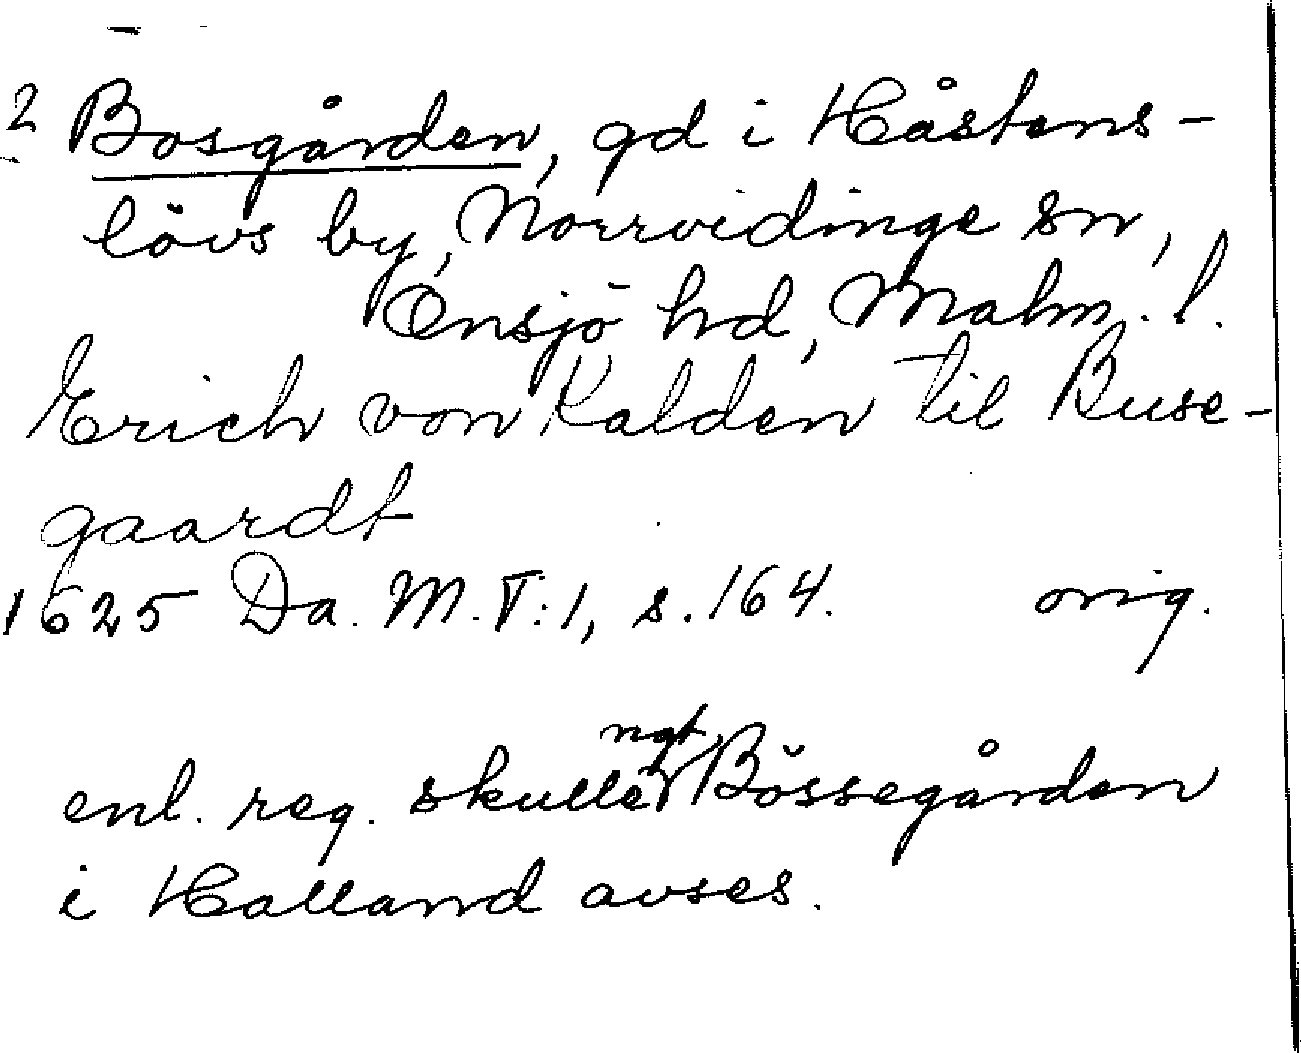 2 Bosgården, gd i Håstens-
lövs by, Norrvidinge sn,
Onsjö hd, Malm. l.
Erich von Kalden til Buse-
gaardt
1625 Da. M. T:1, s. 164. orig.
ngt
enl. reg. skulle Bössegården
i Halland avses.